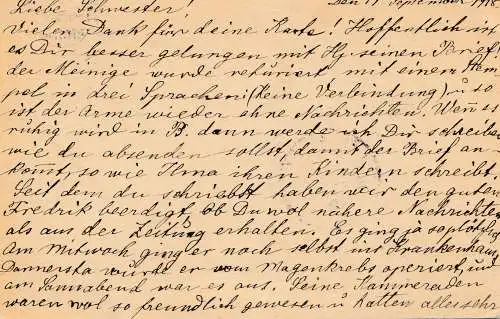 Liebe Schwester! Den 17 September 1918
Vielen Dank für deine Karte! Hoffentlich ist
es Dir besser gelungen mit Hj. seinen Brief
der Meinige wurde returiert mit einem Stem-
pel in drei Sprachen: (Keine Verbindung) u so
ist der Arme wieder ohne Nachrichten. Wenn s
ruhig wird in B. dann werde ich Dir schreibe
wie du absenden sollst, damit der Brief an-
kommt, so wie Ilma ihren Kindern schreibt.
Seit dem du schriebst haben wir den guten
Fredrik beerdigt, ob Du wol nähere Nachrichte
als aus der Zeitung erhalten. Es ging ja so plötzl
Am Mittwoch ging er noch selbst ins Krankenhaus
Donnersta wurde er vom Magenkrebs operiert, und
am Sonnabend war es aus. Seine Kameraden
waren wol so freundlich gewesen u hatten alles sehr